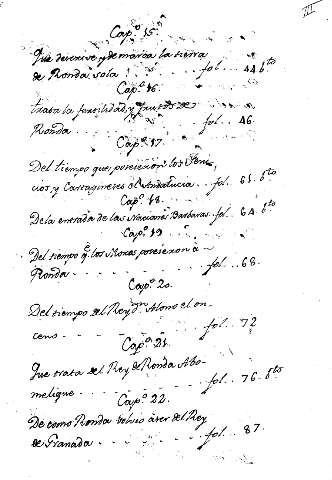 III
Capº 15.
Que descrive, y demarca la tierra
de Ronda sola . . . . . fol . . 44 bto
Capº 16.
trata la fertilidad, y frutos de
Ronda . . . . . fol . . 46.
Capº 17.
Del tiempo que poseieron los Feni-
cios, y Cartagineses el Andalucia . . fol . . 61. bto
Capº 18.
De la entrada de las Naciones Barbaras. fol . . 64. bto
Capº 19
Del tiempo q. los Moros poseieron á
Ronda . . . . . fol . . 68.
Capº 20.
Del tiempo del Rey dn. Alonso el on-
ceno . . . . . fol . . 72
Capº 21.
Que trata del Rey de Ronda Abo-
melique . . . . . fol . . 76. bto
Capº 22.
De como Ronda volvio á ser del Rey
de Granada . . . . . fol . . 87.